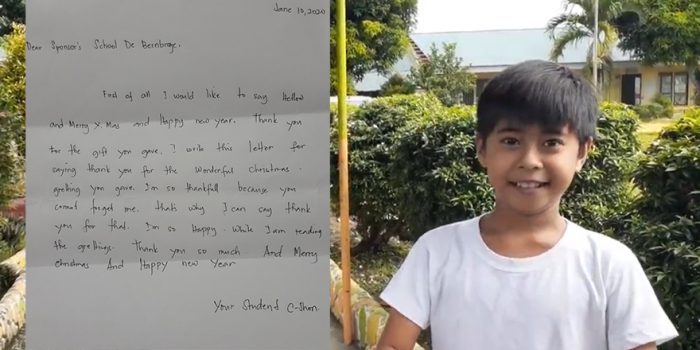 June 10, 2020
Dear Sponsor's School De Bernbroge.
First of all I would like to say Hellow
and Merry X Mas and Happy new year. Thank you
for the gift you gave. I write this letter for
saying thank you for the wonderful christmas
gretting you gave. I'm so thankfull because you
cannot forget me. that's why I can say thank
you for that. I'm so Happy. While I am reading
the grettings. Thank you so much And Merry
christmas And Happy new Year
Your Student C-Jhan.